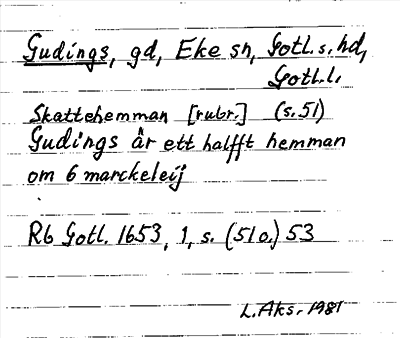 Gudings, gd, Eke sn, Gotl. s. hd,
Gotl. l.
Skattehemman [rubr.] (s. 51)
Gudings är ett halfft hemman
om 6 marckeleij
Rb Gotl. 1653, 1, s. (51 o.) 53
L. Aks. 1981